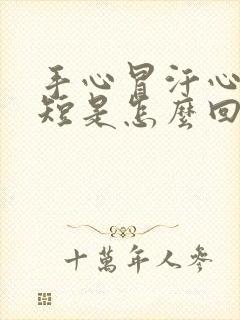 手心冒汗心
短是怎麼回
十萬年人參